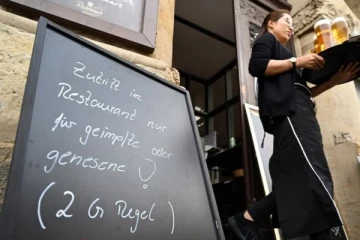 Zutritt im
Restaurant nur
für geimpfte oder
genesene !
(2 G Regel)